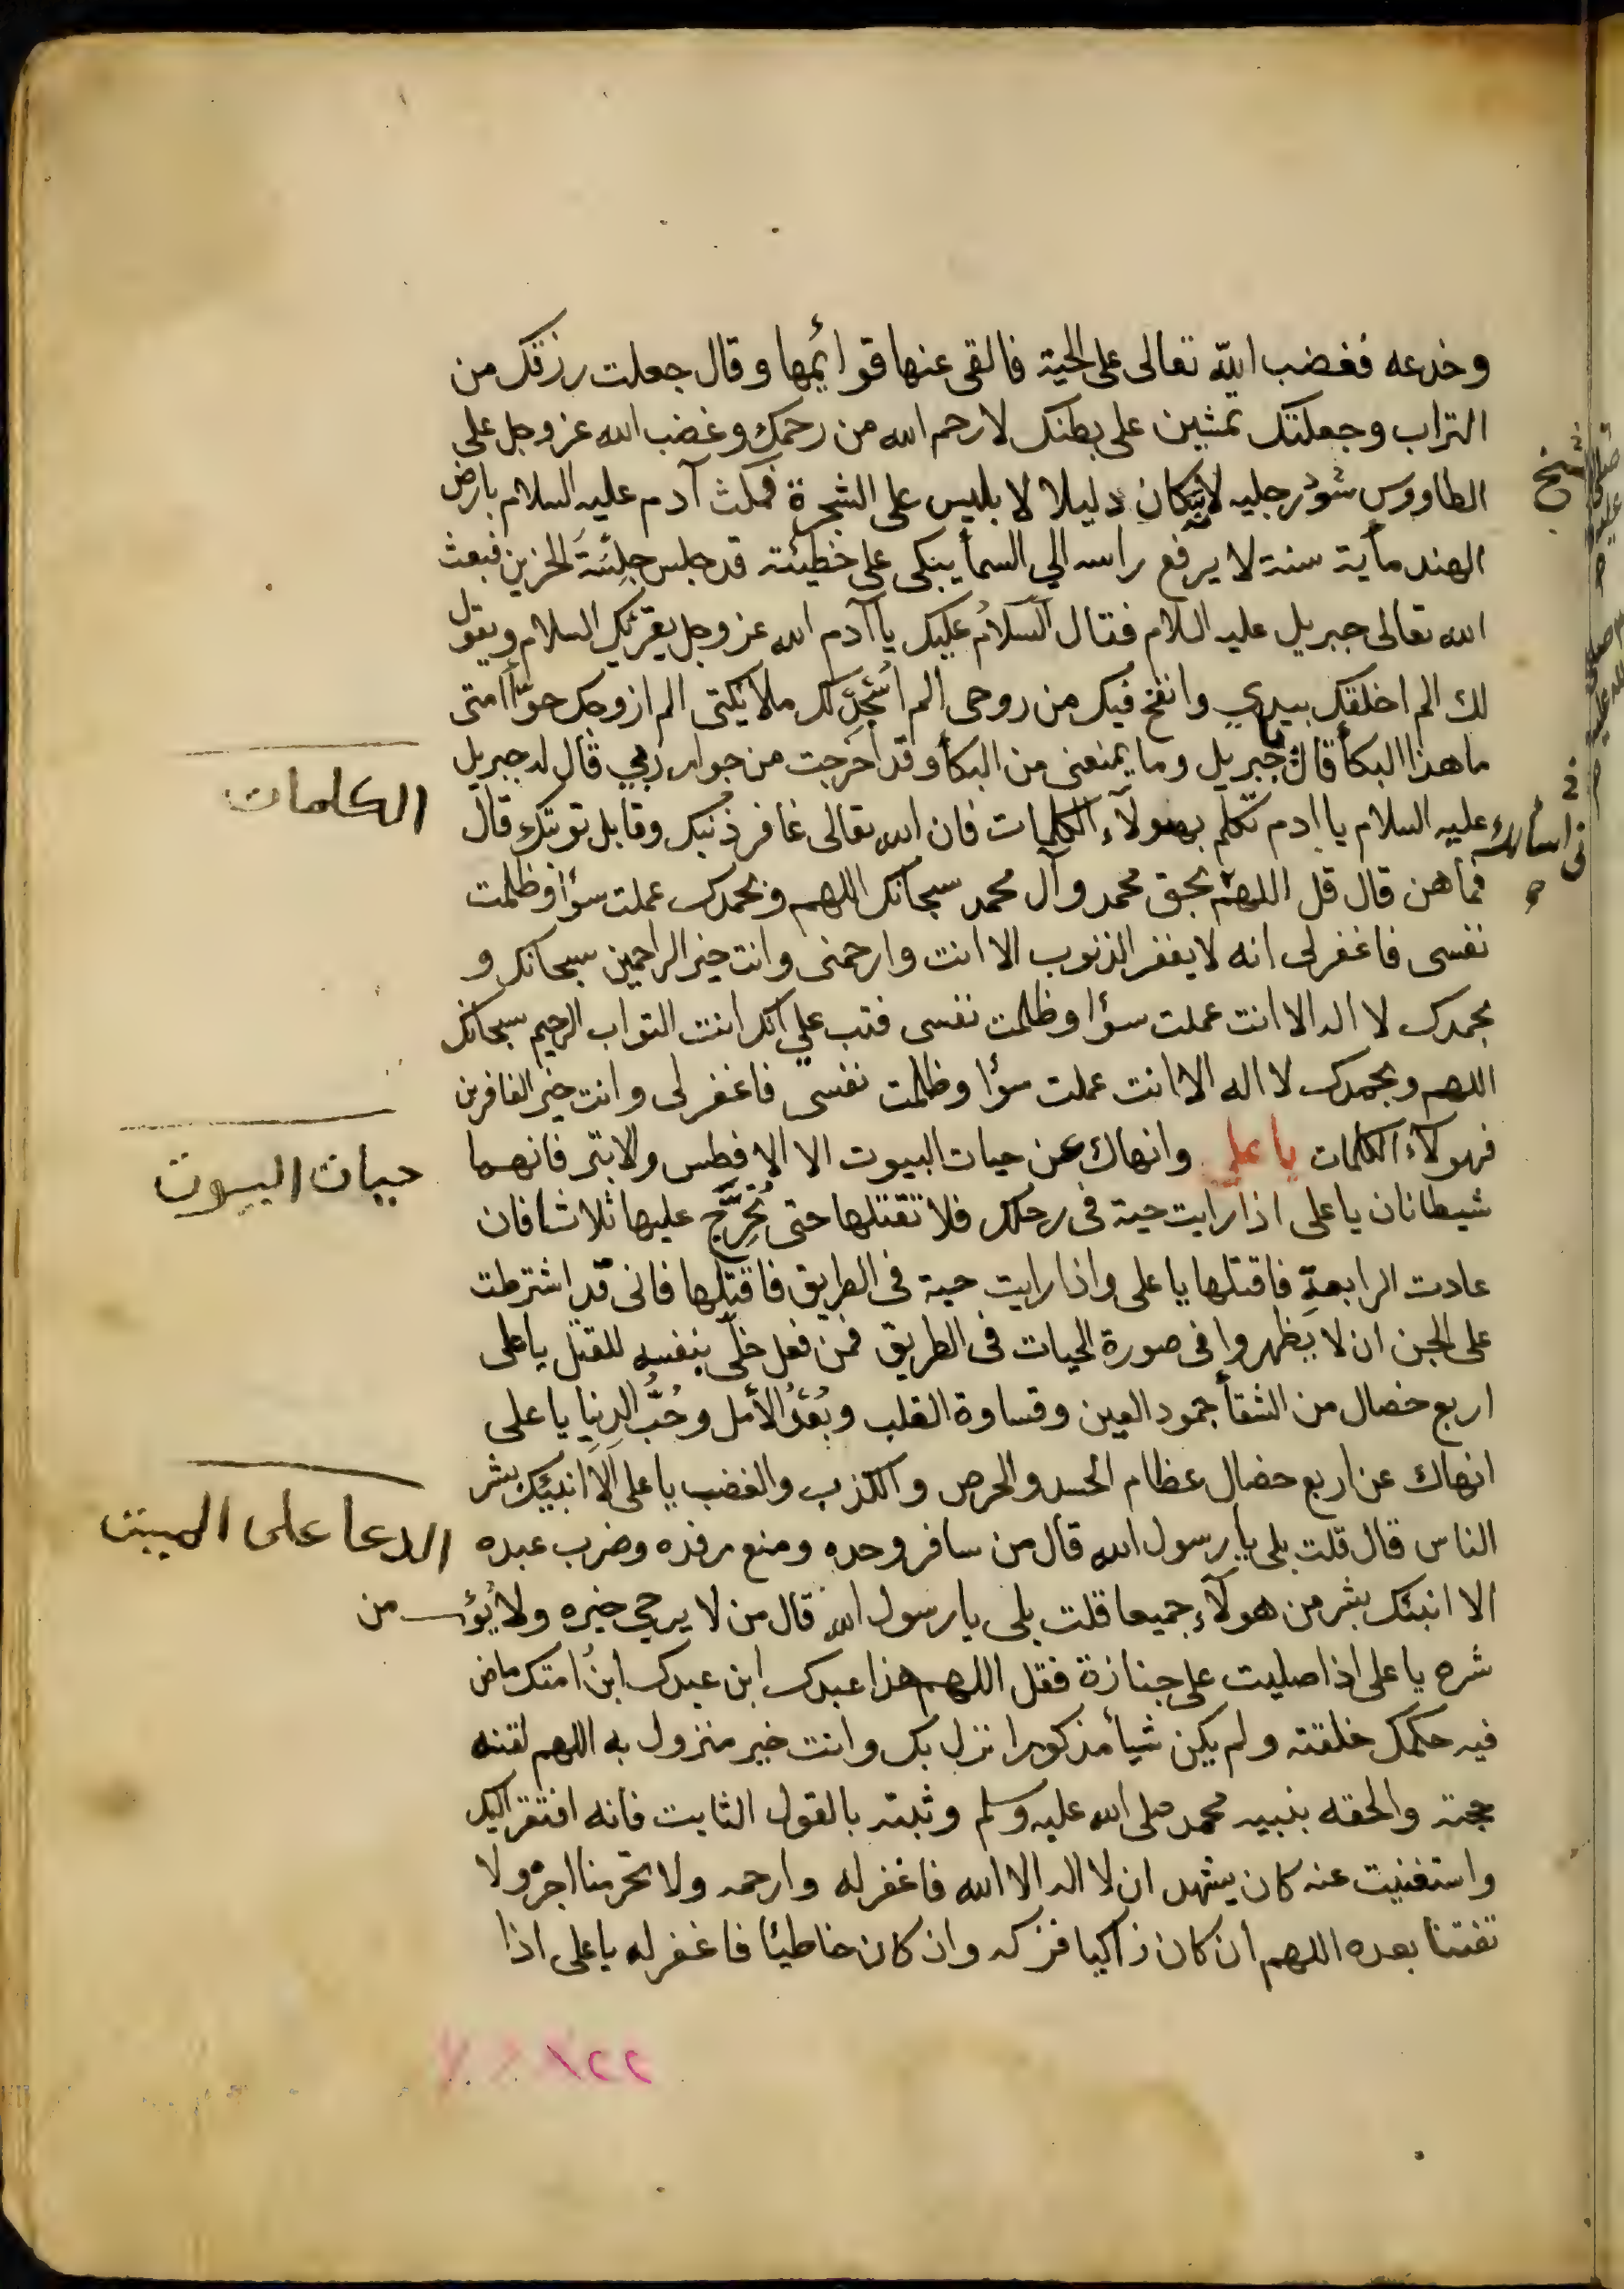 وخدعه فغضب الله تعالى على الحية فالقى عنها قوائمها وقال جعلت رزقك من
التراب وجعلتك تمشين على بطنك لا رحم الله من رحمك وغضب الله عز وجل على
الطاووس شوّد رجليه لانه كان دليلا لابليس على الشجرة فمكث آدم عليه السلام بارض
الهند مأية سنة لا يرفع راسه الي السمأ يبكى على خطيئته قد جلس جِلسَةَ الحزين فبعث
الله تعالى جبريل عليه السلام فقال السلامُ عليك يا آدم الله عز وجل يقرئك السلام ويقول
لك الم اخلقك بيدي وانفخ فيك من روحى الم اُسْجِدْ لك ملائكتى الم ازوجك حوّاأمتى
ما هذا البكأ قال يا جبريل وما يمنعنى من البكأ وقد اخرجت من جوار ربي قال له جبريل
عليه السلام يا ادم تكلم بهولآء الكلمات فان الله تعالى غافر ذنبك وقابل توبتك قال
فما هن قال قل اللهم بحق محمد وآل محمد سبحانك اللهم وبحمدك عملت سؤا وظلمت
نفسى فاغفر لى انه لا يغفر الذنوب الا انت وارحمنى وانت خير الراحمين سبحانك و
بحمدك لا اله الا انت عملت سؤا وظلمت نفسى فتب علي انك انت التواب الرحيم سبحانك
اللهم وبحمدك لا اله الا انت عملت سؤا وظلمت نفسى فاغفر لى وانت خير الغافرين
فهولآء الكلمات يا علي وانهاك عن حيات البيوت الا الافطس والابتر فانهما
شيطانان يا على اذا رايت حية فى رحلك فلا تقتلها حتى تُحَرِّج عليها ثلاثا فان
عادت الرابعة فاقتلها يا على واذا رايت حية فى الطريق فاقتلها فانى قد اشترطت
على الجن ان لا يظهروا فى صورة الحيات فى الطريق فمن فعل خلّى بنفسه للقتل يا على
اربع خصال من الشقأ جمود العين وقساوة القلب وبُعْدُ الأمل وحُبُّ الدنيا يا على
انهاك عن اربع خصال عظام الحسد والحرص والكذب والغضب يا على اَلاَ انبيك بشر
الناس قال قلت بلى يا رسول الله قال من سافر وحده ومنع رفده وضرب عبده
الا انبئك بشر من هولآء جميعا قلت بلى يا رسول الله قال من لا يرجى خيره ولا يؤ من
شره يا على اذا صليت على جنازة فقل اللهم هذا عبدك ابن عبدك ابنُ امتك ماض
فيه حكمك خلقته ولم يكن شيأ مذكورا نزل بك وانت خير منزول به اللهم لقنه
حجته والحقه بنبيه محمد صلى الله عليه وسلم وثبته بالقول الثابت فانه افتقر اليك
واستغنيت عنه كان يشهد ان لا اله الا الله فاغفر له وارحمه ولا تحرمنا اجره ولا
تفتنا بعده اللهم ان كان زاكيا فزكه وان كان خاطيئا فاغفر له يا على اذا
الكلمات
حيات البيوت
الدعا على الميت
١٢٢